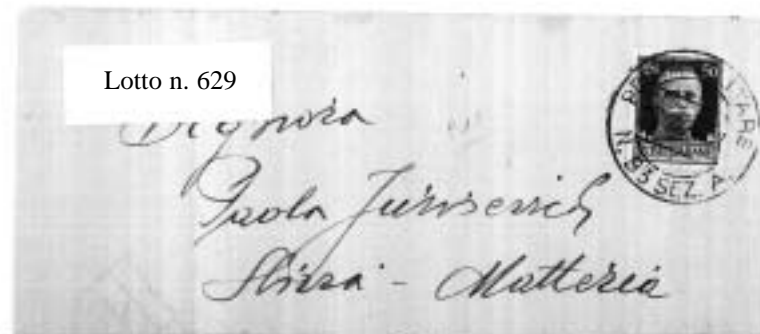 Lotto n. 629
Signora
Paola Jurissevich
- Matteria
N. 83 SEZ. A.